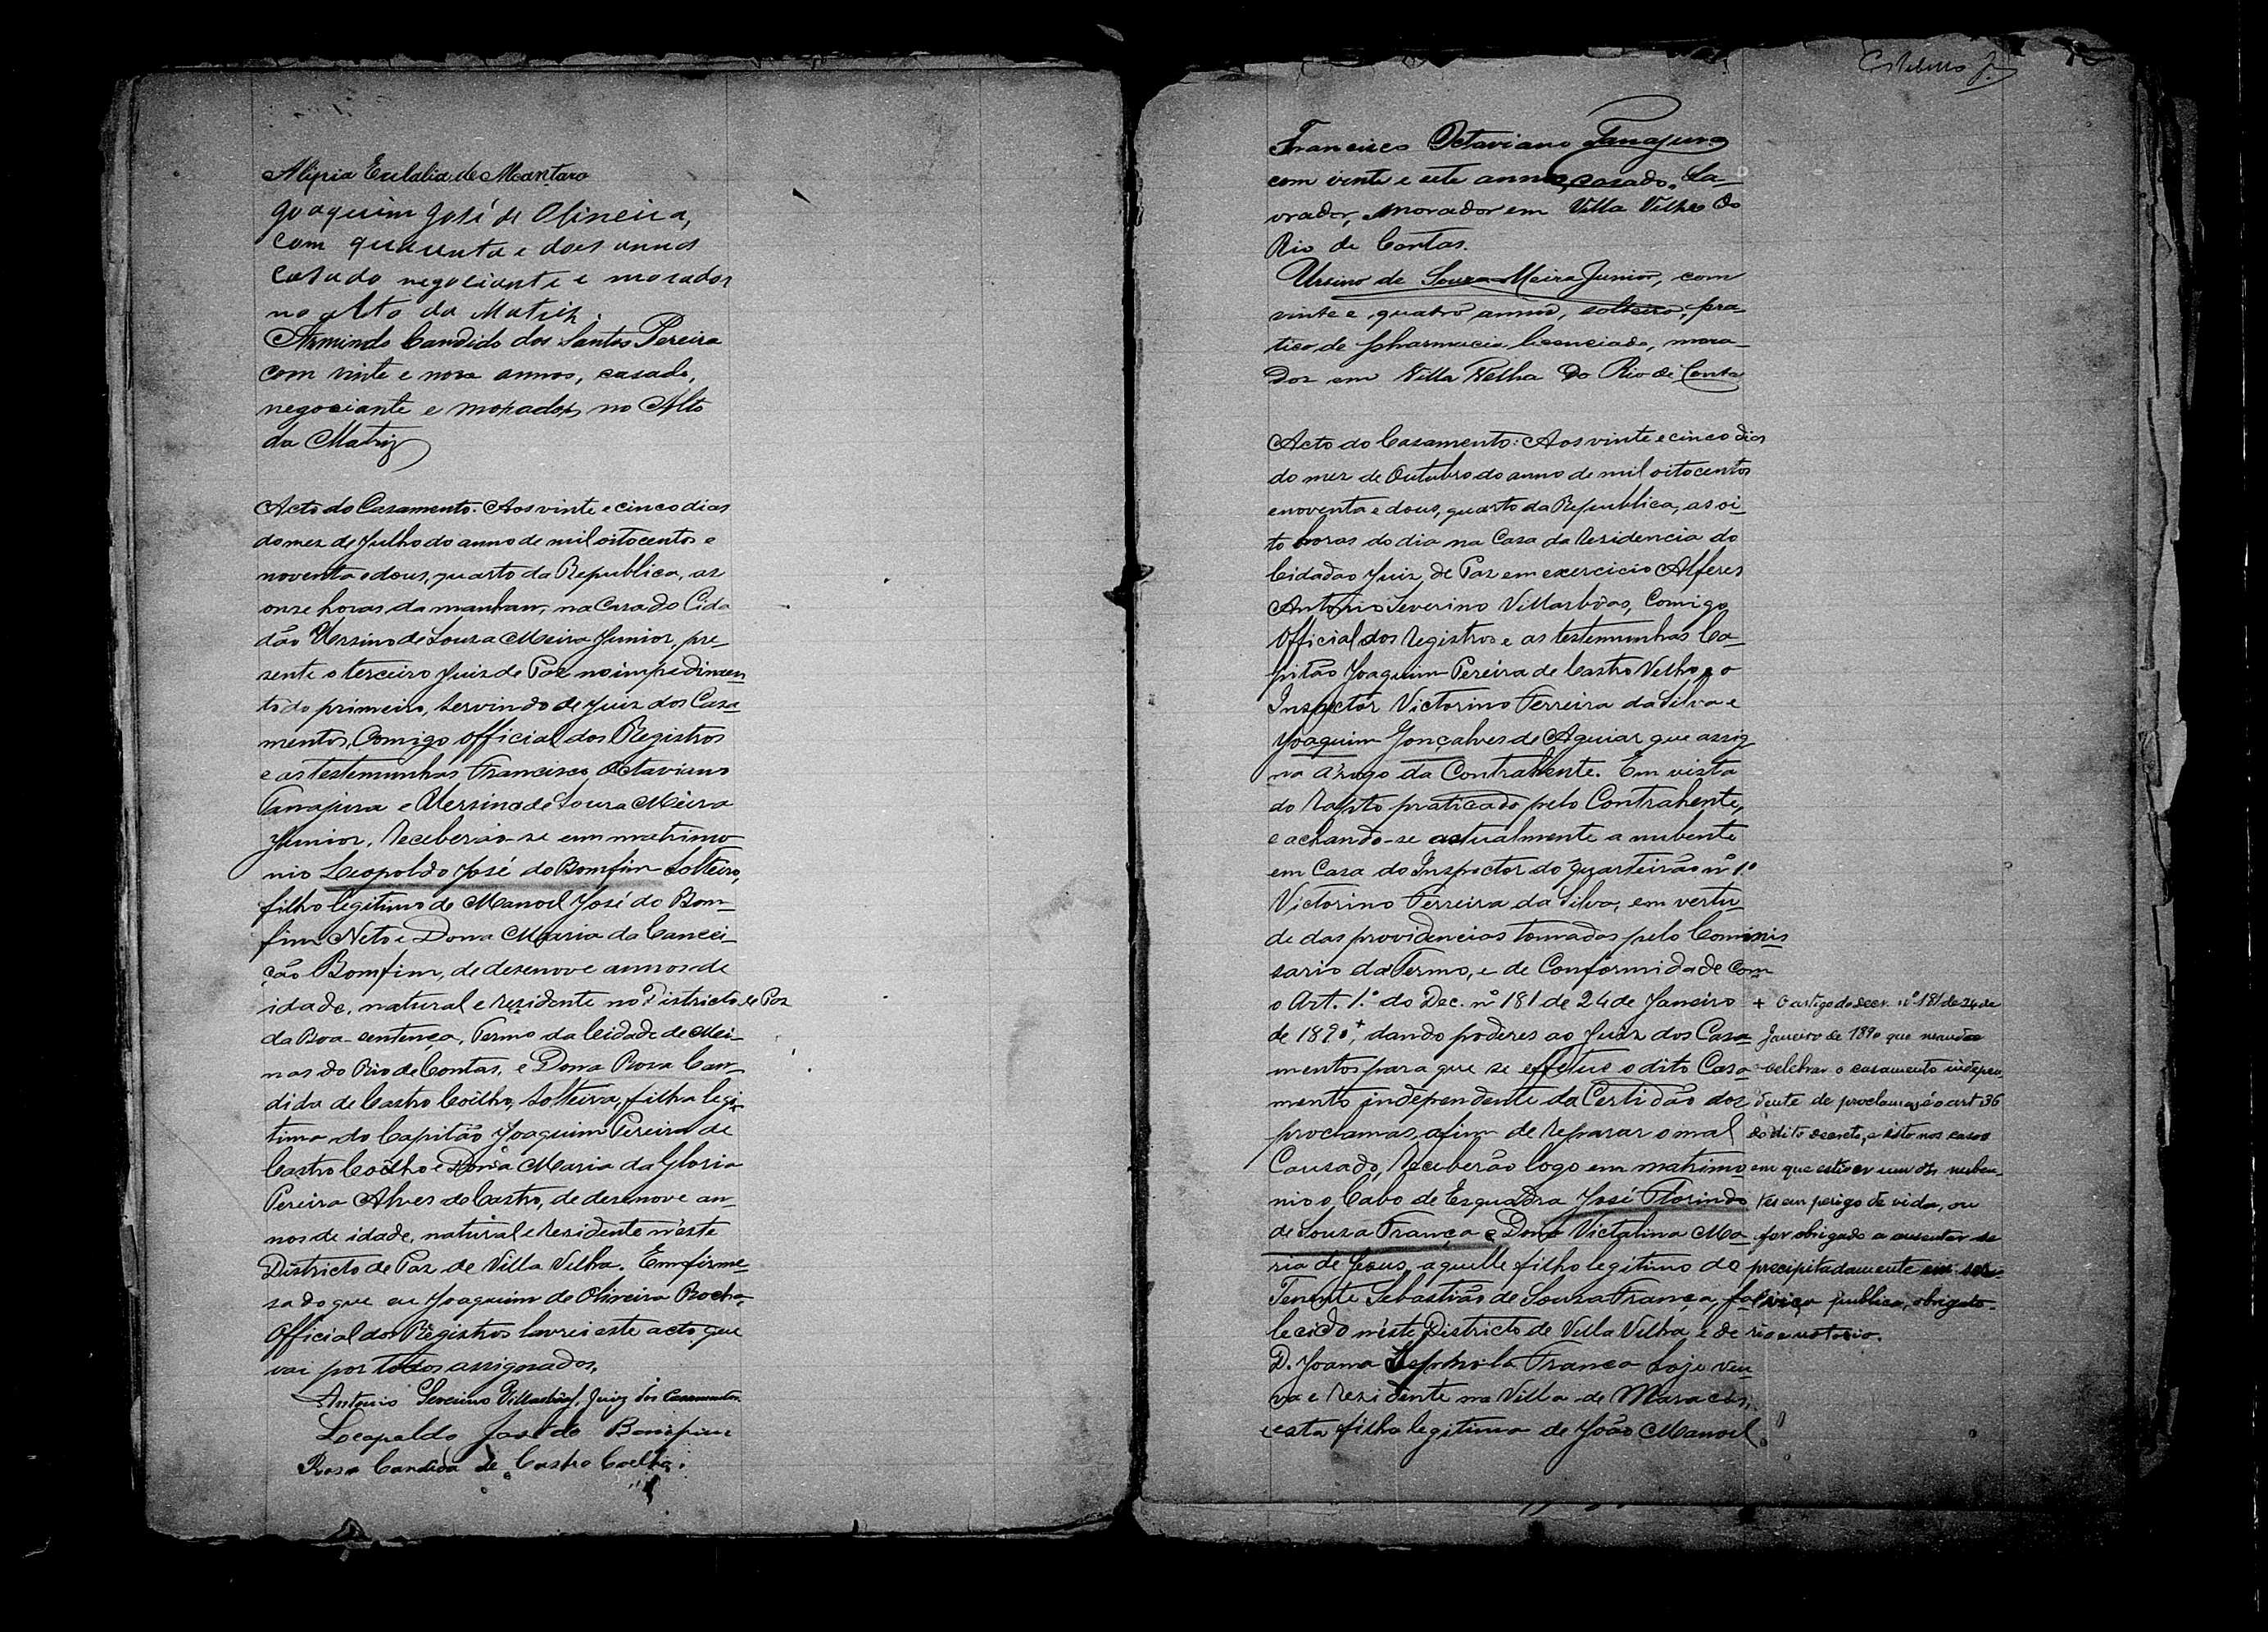 Alipia Eulalia de Mantaro
Joaquim José de Oliveira,
com quarenta e dois annos
casado negociante e morador
no Alto da Matriz.
Armindo Candido dos Santos Pereira
com vinte e nove annos, casado,
negociante e morador no Alto
da Matriz
Acto do Casamento. Aos vinte e cinco dias
do mez de Julho do anno de mil oitocentos e
noventa e dous, quarto da Republica, as
onze horas da manhan, na Casa do Cida
dão Ursino de Souza Meira Junior, pre-
sente o terceiro Juiz de Paz no impedimen
to do primeiro, servindo de Juiz dos Casa
mentos, Comigo official dos Registros
e as testemunhas Francisco Octaviano
Tanajura e Ursino de Souza Meira
Junior, Receberão-se em matrimo
nio Leopoldo José do Bomfim Solteiro,
filho legitimo de Manoel José do Bom-
fim Neto e Dona Maria da Concei-
ção Bomfim, de desenove annos de
idade, natural e residente no Districto de Paz
da Boa-sentença, Termo da Cidade de Mi-
nas do Rio de Contas, e Dona Rosa Can-
dida de Castro Coêlho, Solteira, filha legi-
tima do Capitão Joaquim Pereira de
Castro Coêlho e Dona Maria da Gloria
Pereira Alves de Castro, de desenove an-
nos de idade, natural e residente n'este
Districto de Paz de Villa Velha. Em firme-
sa do que eu Joaquim de Oliveira Rocha,
Official dos Registros lavrei este acto que
vai por todos assignados.
Antonio Severino Villasbôas, Juiz dos Casamentos
Leopoldo José do Bomfim
Rosa Candida de Castro Coelho.
Francisco Octaviano Tanajura
com vinte e sete annos, casado, La-
vrador, morador em Villa Velha do
Rio de Contas.
Ursino de Souza Meira Junior, com
vinte e quatro annos, solteiro, pra-
tico de pharmacia licenciado, mora-
dor em Villa Velha do Rio de Conta
Acto do Casamento: Aos vinte e cinco dias
do mez de Outubro do anno de mil oitocentos
e noventa e dous, quarto da Republica, as oi-
to horas do dia na Casa da Residencia do
Cidadão Juiz de Paz em exercicio Alferes
Antonio Severino Villasbôas, Comigo
Official dos Registros e as testemunhas Ca-
pitão Joaquim Pereira de Castro Velho, e o
Inspector Victorino Ferreira da Silva e
Joaquim Gonçalves de Aguiar que assig
na a rogo da Contrahente. Em vista
do rapto praticado pelo Contrahente,
e achando-se actualmente a nubente
em Casa do Inspector do quarteirão nº 1º
Victorino Ferreira da Silva, em vertu-
de das providencias tomadas pelo Commis
sario do Termo, e de Conformidade Com
o Art. 1.º do Dec. nº 181 de 24 de Janeiro
de 1890,+ dando poderes ao Juiz dos Casa
mentos para que se effetue o dito Casa-
mento independente da Certidão dos
proclamas, afim de reparar o mal
Causado, Receberão logo em matrimo
nio o Cabo de Esquadra José Florindo
de Souza França e Dona Victalina Ma-
ria de Jesus, aquelle filho legitimo do
Tenente Sebastião de Souza França, fal
lecido n'este Districto de Villa Velha, e de
D. Joanna França hoje viu-
va e residente na Villa de Maracás,
e esta filha legitima de João Manoel
+ O artigo do Decr. nº 181 de 24 de
Janeiro de 1890 que manda
celebrar o casamento indepen-
dente de proclamas é o art 36
do dito decreto, e isto nos casos
em que estiver um dos nuben-
tes em perigo de vida, ou
for obrigado a ausentar se
precipitadamente em ser-
viço publico, obrigato-
rio e notorio.